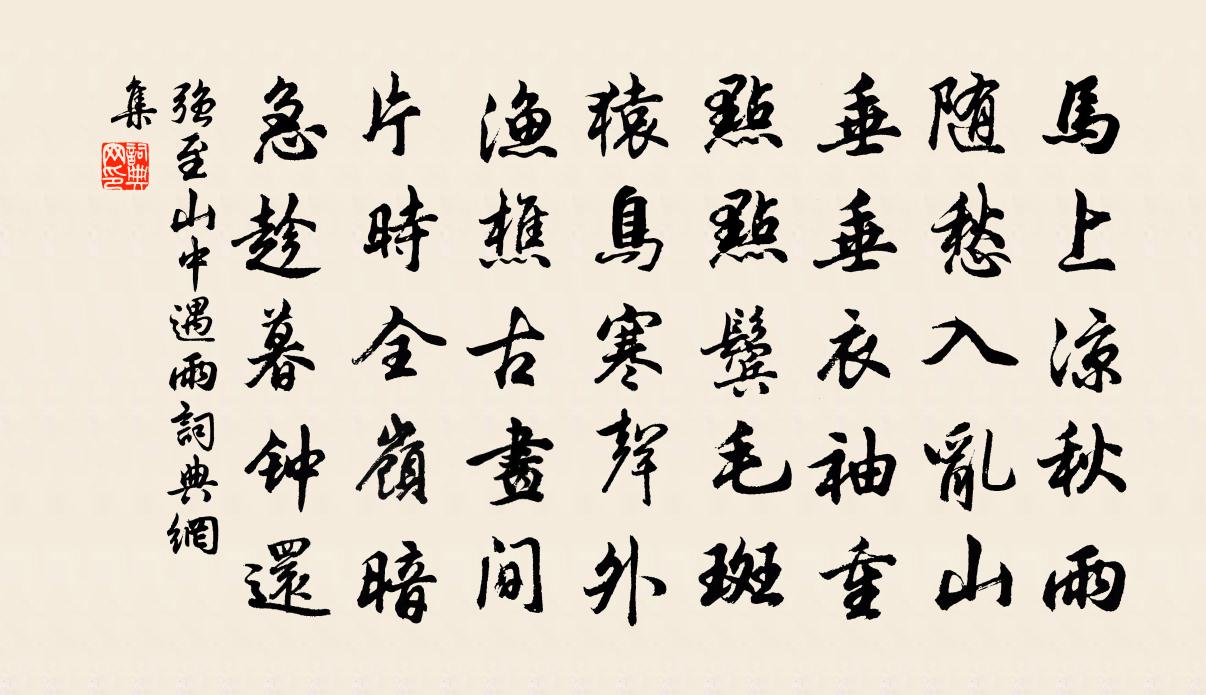 馬上涼秋雨
随愁入亂山
垂垂衣袖重
點點鬢毛斑
猿鳥寒聲外
漁樵古畫間
片時全嶺暗
急趁暮钟還
強至山中遇雨詞典網
集
詞典網印